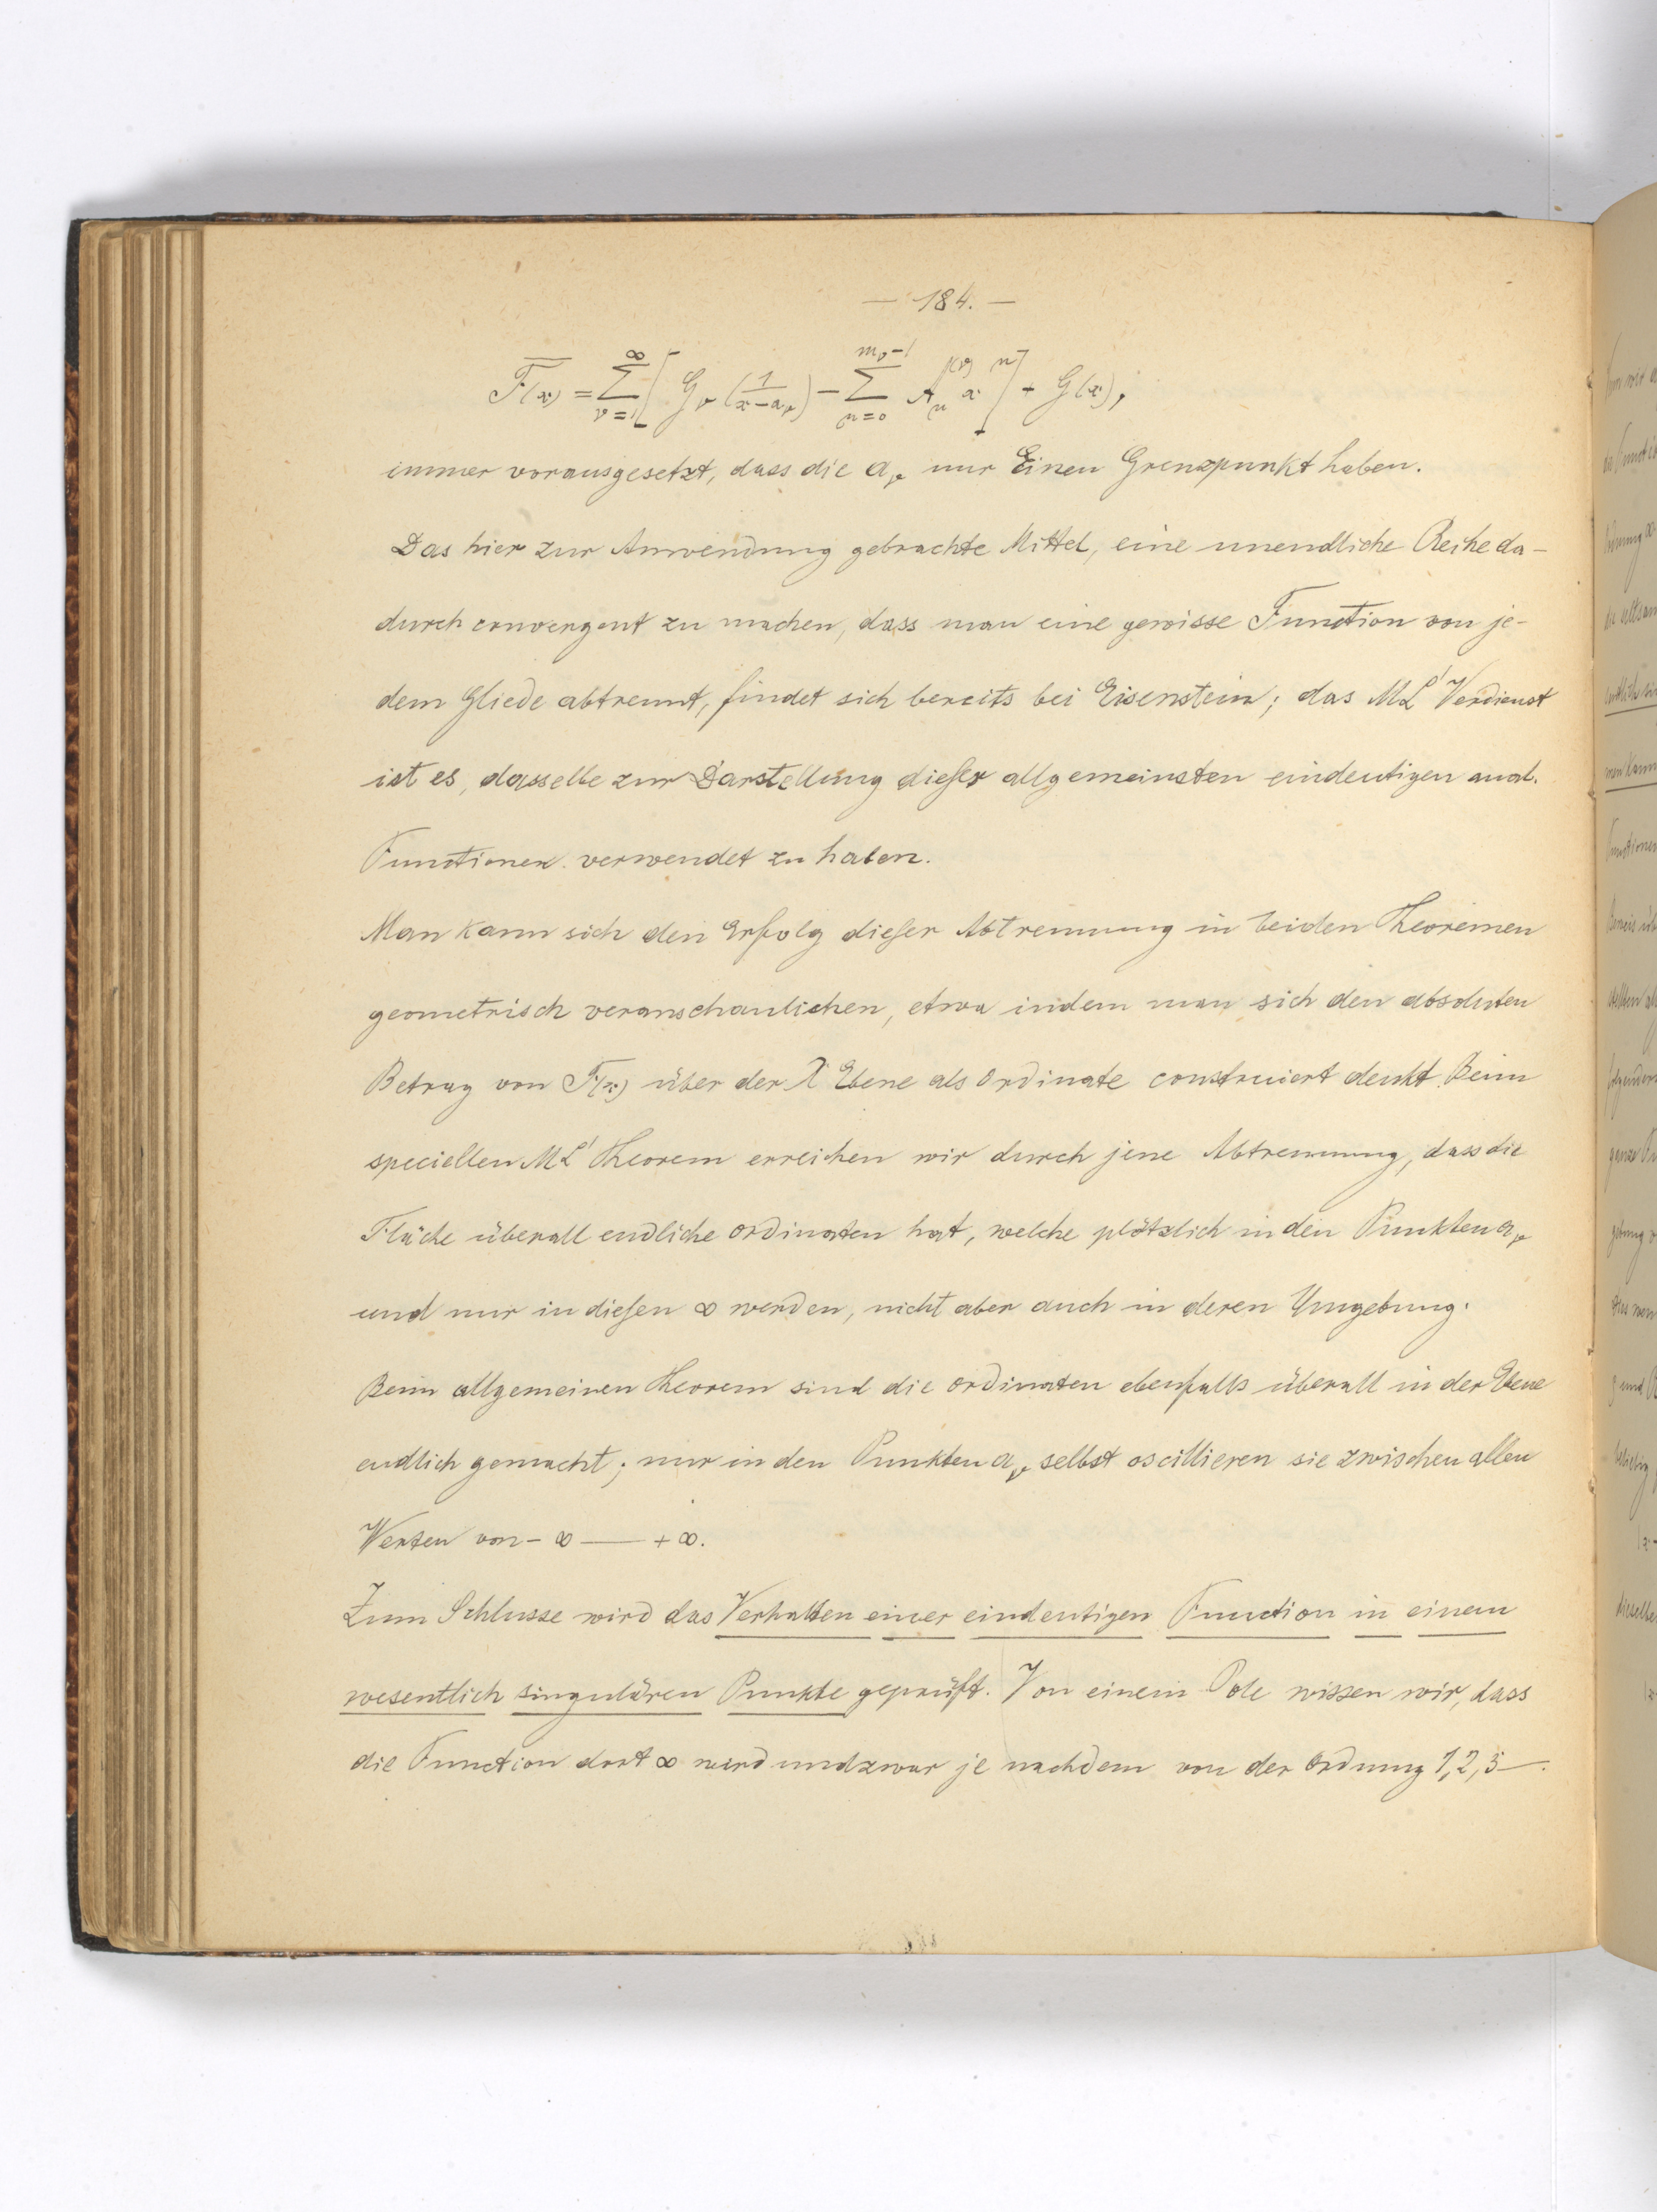 — 184. —
F(x) = ∑_{ν=1}^{∞} [ G_ν (1/(x−a_ν)) − ∑_{n=0}^{m_ν−1} A_n^{(ν)} x^n ] + G(x),
immer vorausgesetzt, dass die a_ν nur Einen Grenzpunkt haben.
Das hier zur Anwendung gebrachte Mittel, eine unendliche Reihe da-
durch convergent zu machen, dass man eine gewisse Function von je-
dem Gliede abtrennt, findet sich bereits bei Eisenstein; das ML' Verdienst
ist es, dasselbe zur Darstellung dieser allgemeinsten eindeutigen anal.
Functionen verwendet zu haben.
Man kann sich den Erfolg dieser Abtrennung in beiden Theoremen
geometrisch veranschaulichen, etwa indem man sich den absoluten
Betrag von F(x) über der X Ebene als Ordinate construiert denkt. Beim
speciellen ML' Theorem erreichen wir durch jene Abtrennung, dass die
Fläche überall endliche Ordinaten hat, welche plötzlich in den Punkten a_ν
und nur in diesen ∞ werden, nicht aber auch in deren Umgebung.
Beim allgemeinen Theorem sind die Ordinaten ebenfalls überall in der Ebene
endlich gemacht; nur in den Punkten a_ν selbst oscillieren sie zwischen allen
Werten von − ∞ — + ∞.
Zum Schlusse wird das Verhalten einer eindeutigen Function in einem
wesentlich singulären Punkte geprüft. Von einem Pole wissen wir, dass
die Function dort ∞ wird und zwar je nachdem von der Ordnung 1, 2, 3 —.